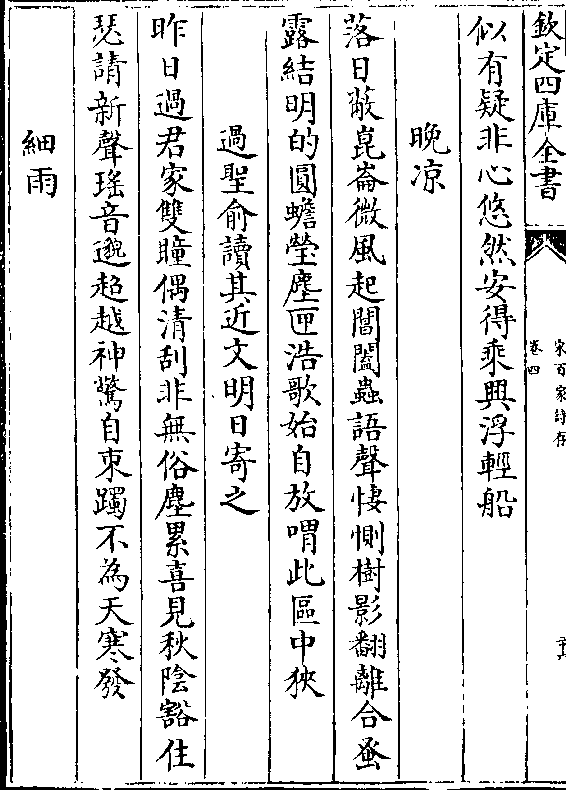 欽定四庫全書
宋百家詩存
卷四
似有疑非心悠然安得乘興浮輕船
晚凉
落日蔽崑崙微風起閶闔蟲語聲悽惻樹影翻離合蚤
露結明的圓蟾瑩塵匣浩歌始自放喟此區中狹
過聖俞讀其近文明日寄之
昨日過君家雙瞳偶清刮非無俗塵累喜見秋陰豁住
瑟請新聲瑤音邈超越神驚自束躅不為天寒發
細雨